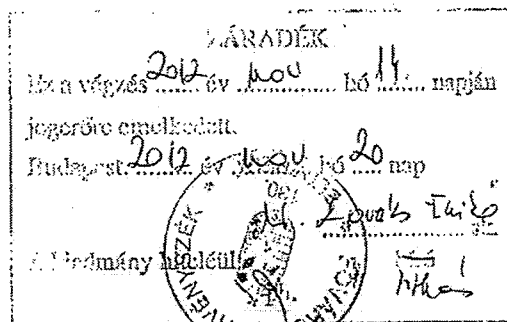 ZÁRADÉK
Ez a végzés 2012 év nov hó 14 napján
jogerőre emelkedett.
Budapest. 2012 év nov hó 20 nap
Kovács Enikő
A kiadmány hiteléül: